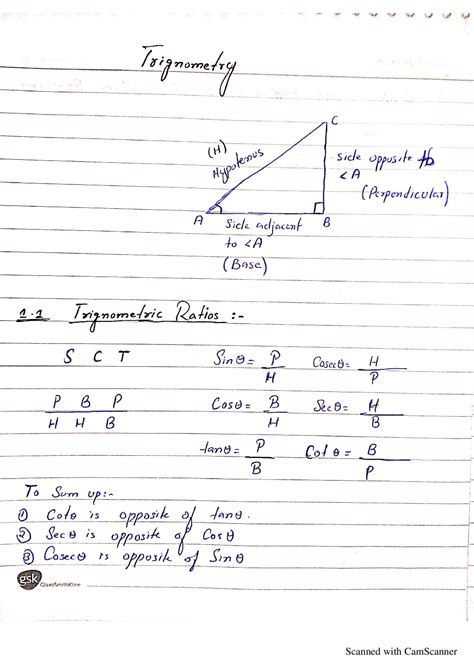 Trignometry
C
(H)
Hypotenus
side opposite to
<A
(Perpendicular)
A
Side adjacent
B
to <A
(Base)
1.1 Trignometric Ratios :-
S C T
Sinθ = P/H
Cosecθ = H/P
P B P
H H B
Cosθ = B/H
Secθ = H/B
tanθ = P/B
Cotθ = B/P
To Sum up:-
① Cotθ is opposite of tanθ.
② Secθ is opposite of Cosθ
③ Cosecθ is opposite of Sinθ
gsk
Scanned with CamScanner